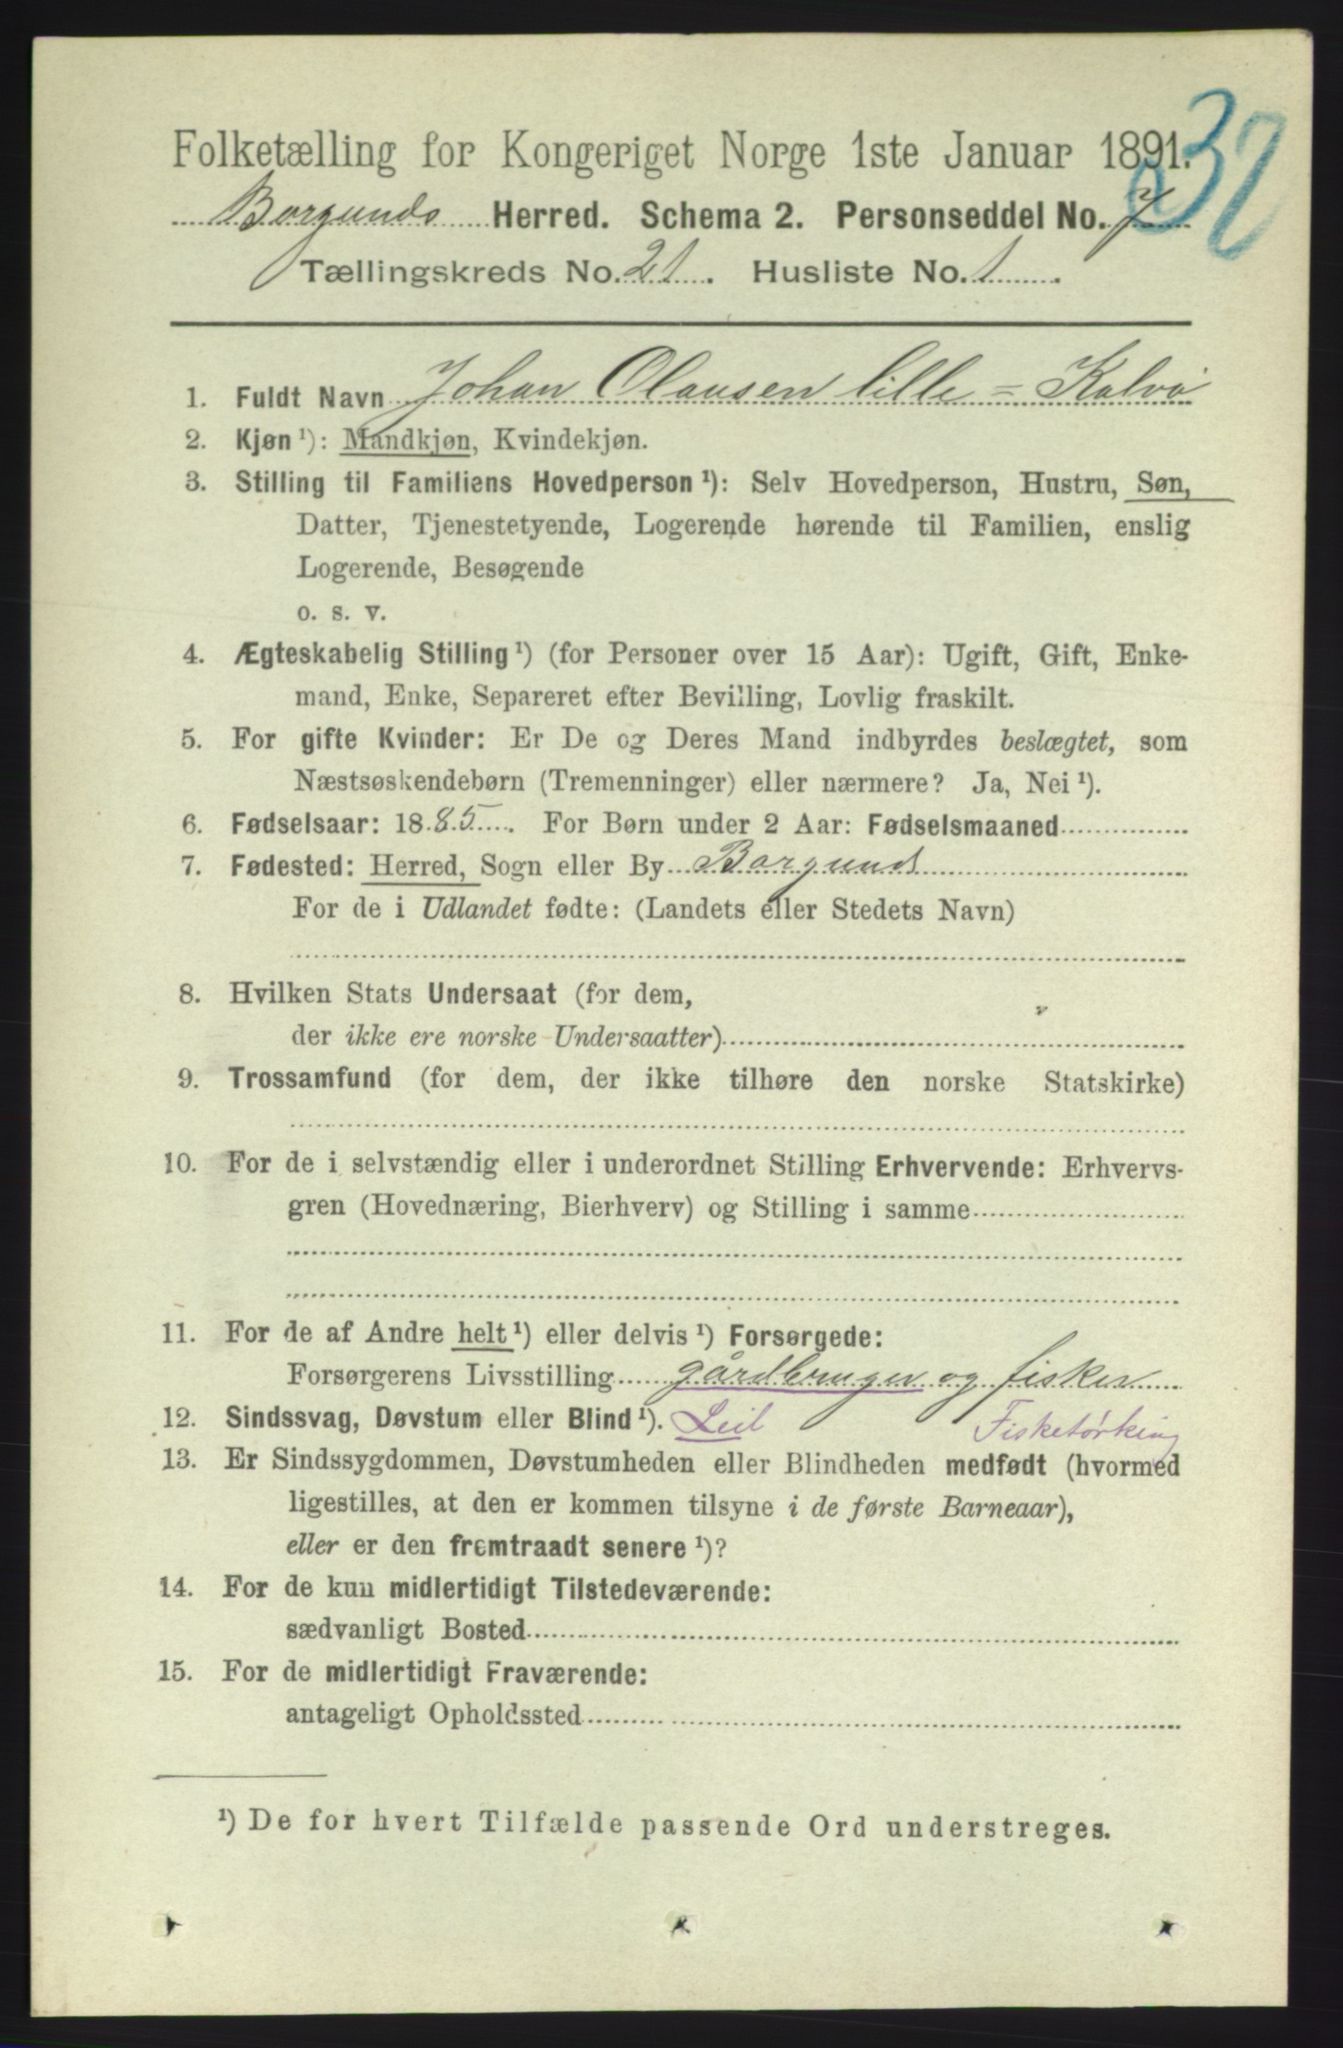 32
Folketælling for Kongeriget Norge 1ste Januar 1891.
Borgunds Herred. Schema 2. Personseddel No. 7
Tællingskreds No. 21. Husliste No. 1.
1. Fuldt Navn Johan Olausen lille = Kalvø
2. Kjøn ¹): Mandkjøn, Kvindekjøn.
3. Stilling til Familiens Hovedperson ¹): Selv Hovedperson, Hustru, Søn,
Datter, Tjenestetyende, Logerende hørende til Familien, enslig
Logerende, Besøgende
o. s. v.
4. Ægteskabelig Stilling ¹) (for Personer over 15 Aar): Ugift, Gift, Enke-
mand, Enke, Separeret efter Bevilling, Lovlig fraskilt.
5. For gifte Kvinder: Er De og Deres Mand indbyrdes beslægtet, som
Næstsøskendebørn (Tremenninger) eller nærmere? Ja, Nei ¹).
6. Fødselsaar: 1885. For Børn under 2 Aar: Fødselsmaaned
7. Fødested: Herred, Sogn eller By Borgund
For de i Udlandet fødte: (Landets eller Stedets Navn)
8. Hvilken Stats Undersaat (for dem,
der ikke ere norske Undersaatter)
9. Trossamfund (for dem, der ikke tilhøre den norske Statskirke)
10. For de i selvstændig eller i underordnet Stilling Erhvervende: Erhvervs-
gren (Hovednæring, Bierhverv) og Stilling i samme
11. For de af Andre helt ¹) eller delvis ¹) Forsørgede:
Forsørgerens Livsstilling gårdbruger og fisker
12. Sindssvag, Døvstum eller Blind ¹). Leil Fisketørking
13. Er Sindssygdommen, Døvstumheden eller Blindheden medfødt (hvormed
ligestilles, at den er kommen tilsyne i de første Barneaar),
eller er den fremtraadt senere ¹)?
14. For de kun midlertidigt Tilstedeværende:
sædvanligt Bosted
15. For de midlertidigt Fraværende:
antageligt Opholdssted
¹) De for hvert Tilfælde passende Ord understreges.